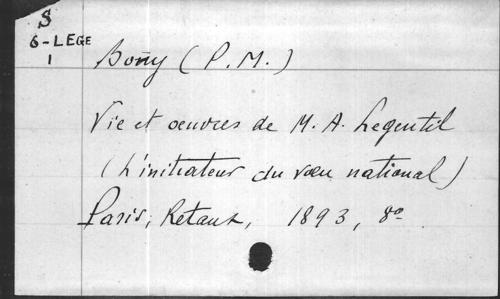 S
6-LEGE
1
Bony (P.M.)
Vie et oeuvres de M. A. Legentil
(L'initiateur du voeu national)
Paris, Retaux, 1893, 8º